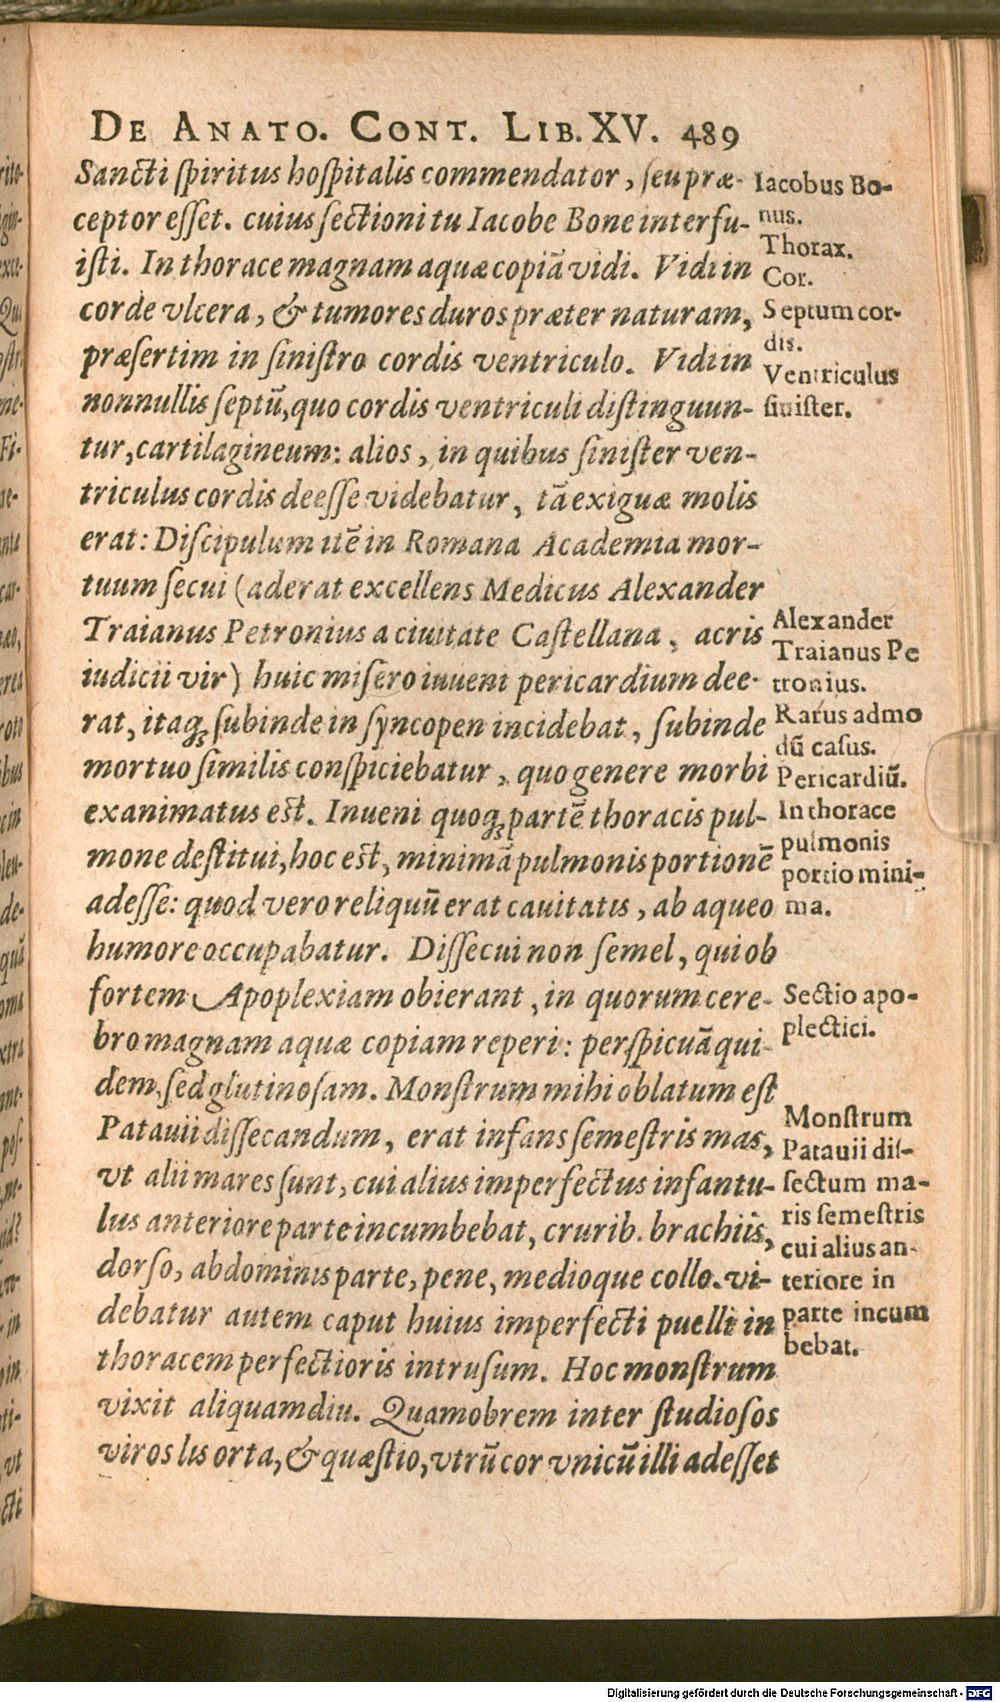 DE ANATO. CONT. LIB. XV. 489
Sancti ſpiritus hoſpitalis commendator, ſeu præ-
ceptor eſſet. cuius ſectioni tu Iacobe Bone interfu-
iſti. In thorace magnam aquæ copiã vidi. Vidi in
corde vlcera, & tumores duros præter naturam,
præſertim in ſiniſtro cordis ventriculo. Vidi in
nonnullis ſeptũ, quo cordis ventriculi diſtinguun-
tur, cartilagineum: alios, in quibus ſiniſter ven-
triculus cordis deeſſe videbatur, tã exiguæ molis
erat: Diſcipulum itẽ in Romana Academia mor-
tuum ſecui (aderat excellens Medicus Alexander
Traianus Petronius a ciuitate Caſtellana, acris
iudicii vir) huic miſero iuueni pericardium dee-
rat, itaq; ſubinde in ſyncopen incidebat, ſubinde
mortuo ſimilis conſpiciebatur, quo genere morbi
exanimatus eſt. Inueni quoq; partẽ thoracis pul-
mone deſtitui, hoc eſt, minimã pulmonis portionẽ
adeſſe: quod vero reliquũ erat cauitatis, ab aqueo
humore occupabatur. Diſſecui non ſemel, qui ob
fortem Apoplexiam obierant, in quorum cere-
bro magnam aquæ copiam reperi: perſpicuã qui-
dem, ſed glutinoſam. Monſtrum mihi oblatum eſt
Patauii diſſecandum, erat infans ſemeſtris mas,
vt alii mares ſunt, cui alius imperfectus infantu-
lus anteriore parte incumbebat, crurib. brachiis,
dorſo, abdominis parte, pene, medioque collo. vi-
debatur autem caput huius imperfecti puelli in
thoracem perfectioris intruſum. Hoc monſtrum
vixit aliquamdiu. Quamobrem inter ſtudioſos
viros lis orta, & quæſtio, vtrũ cor vnicũ illi adeſſet
Iacobus Bo-
nus.
Thorax.
Cor.
Septum cor-
dis.
Ventriculus
ſiniſter.
Alexander
Traianus Pe
tronius.
Rarus admo
dũ caſus.
Pericardiũ.
In thorace
pulmonis
portio mini-
ma.
Sectio apo-
plectici.
Monſtrum
Patauii diſ-
ſectum ma-
ris ſemeſtris
cui alius an-
teriore in
parte incum
bebat.
Digitalisierung gefördert durch die Deutsche Forschungsgemeinschaft - DFG